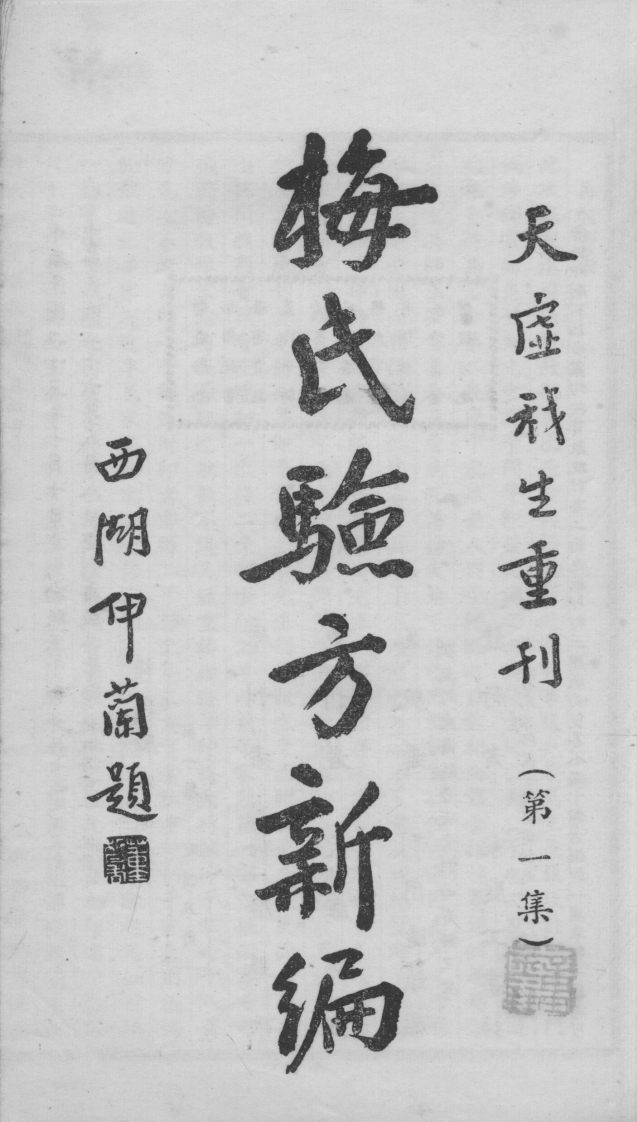 天虛我生重刊（第一集）
梅氏驗方新編
西湖伊蘭題